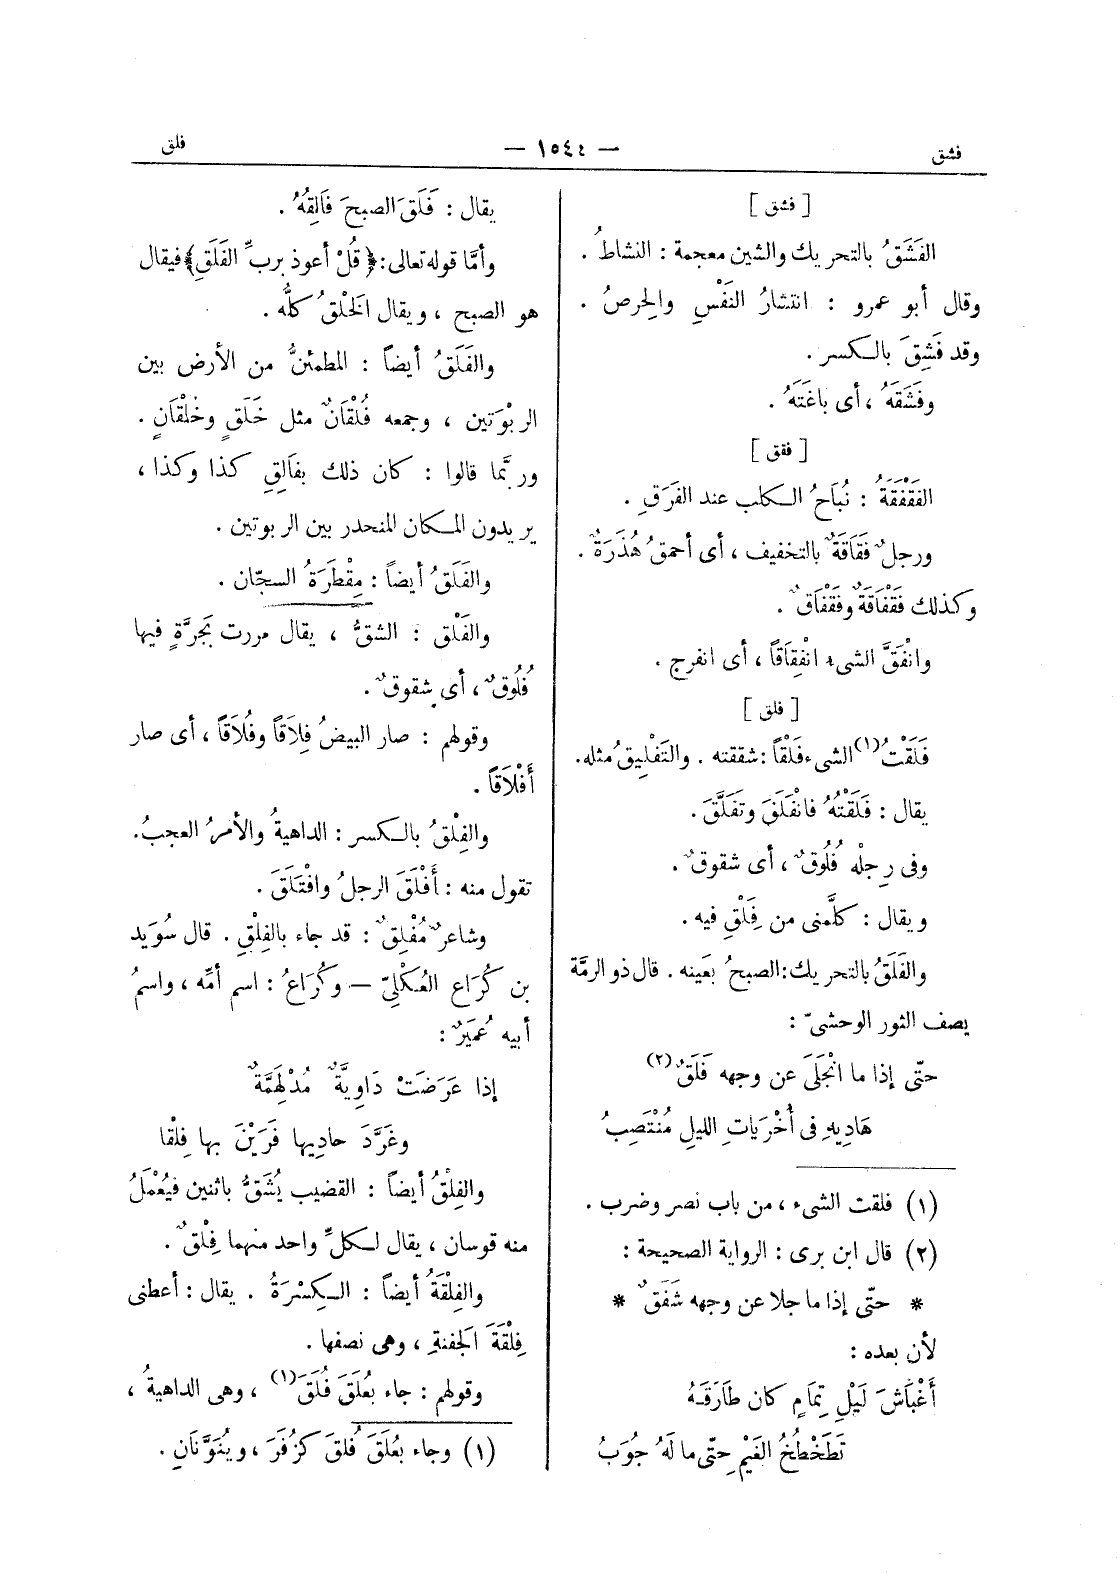 فشق
— ١٥٤٤ —
فلق
[ فشق ]
الفَشَقُ بالتحريك والشين معجمة : النشاطُ .
وقال أبو عمرو : انتشارُ النَفْسِ والحِرصُ .
وقد فَشِقَ بالكسر .
وفَشَقَهُ ، أى باغَتَهُ .
[ فقق ]
الفَقْفَقَةُ : نُبَاحُ الكلب عند الفَرَقِ .
ورجلٌ فَقَاقَةٌ بالتخفيف ، أى أحمقُ هُذَرَةٌ .
وكذلك فَقْفَاقَةٌ وفَقْفَاقٌ .
وانْفَقَّ الشىء انْفِقَاقًا ، أى انفرج .
[ فلق ]
فَلَقْتُ (١) الشىء فَلْقًا : شققته . والتَفْلِيقُ مثله .
يقال : فَلَقْتُهُ فانْفَلَقَ وتَفَلَّقَ .
وفى رِجلِه فُلُوقٌ ، أى شقوقٌ .
ويقال : كلَّمنى من فِلْقِ فيه .
والفَلَقُ بالتحريك : الصبحُ بعَينه . قال ذو الرمّة
يصف الثور الوحشىّ :
حتّى إذا ما انْجَلَى عن وجهه فَلَقٌ (٢)
هَادِيهِ فى أُخْرَيَاتِ الليلِ مُنْتَصِبُ
(١) فلقت الشىء ، من باب نصر وضرب .
(٢) قال ابن برى : الرواية الصحيحة :
* حتّى إذا ما جلا عن وجهه شَفَقٌ *
لأن بعده :
أَغْبَاشَ لَيْلِ تِمَامٍ كان طَارَقَهُ
تَطَخْطُخُ الغَيْمِ حتّى ما لَهُ جُوَبُ
يقال : فَلَقَ الصبحَ فَالِقُهُ .
وأمّا قوله تعالى : ﴿ قُلْ أعوذ بربِّ الفَلَقِ ﴾ فيقال
هو الصبح ، ويقال الخَلْقُ كلُّه .
والفَلَقُ أيضاً : المطمئنُّ من الأرض بين
الربْوَتين ، وجمعه فُلْقَانٌ مثل خَلَقٍ وخُلْقَانٍ .
وربَّما قالوا : كان ذلك بفَالِقِ كذا وكذا ،
يريدون المكان المنحدر بين الربوتين .
والفَلَقُ أيضاً : مِقْطَرَةُ السجّان .
والفَلْق : الشقُّ ، يقال مررت بحَرَّةٍ فيها
فُلُوقٌ ، أى شقوقٌ .
وقولهم : صار البيضُ فِلَاقاً وفُلَاقاً ، أى صار
أَفْلَاقاً .
والفِلْقُ بالكسر : الداهيةُ والأمرُ العجبُ.
تقول منه : أَفْلَقَ الرجلُ وافْتَلَقَ .
وشاعرٌ مُفْلِقٌ : قد جاء بالفِلْقِ . قال سُوَيد
بن كُرَاع العُكْلِىّ — وكُرَاعُ : اسم أمّه ، واسمُ
أبيه عُمَيرٌ :
إذا عَرَضَتْ دَاوِيَّةٌ مُدْلَهِمَّةٌ
وغَرَّدَ حاديها فَرَيْنَ بها فِلْقا
والفِلْقُ أيضاً : القضيب يُشَقُّ باثنين فيُعْمَلُ
منه قوسان ، يقال لكلِّ واحد منهما فِلْقٌ .
والفِلْقَةُ أيضاً : الكِسْرَةُ . يقال : أعطنى
فِلْقَةَ الجَفنةِ ، وهى نصفها .
وقولهم : جاء بعُلَقَ فُلَقَ (١) ، وهى الداهيةُ ،
(١) وجاء بعُلَقَ فُلَقَ كزُفَرَ ، ويُنَوَّنَانِ .